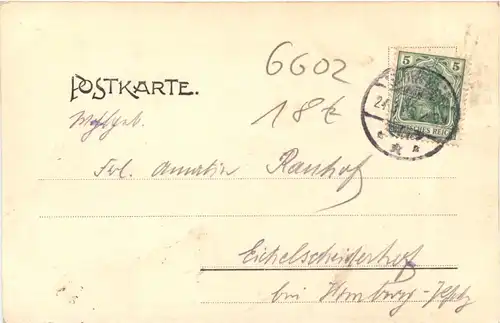 5 5
6602
POSTKARTE.
18 €
24
DEUTSCHES REICH
Wohlgeb.
Frl. Amalia Rauhof
Eichelscheiderhof
bei Homburg-Pfalz